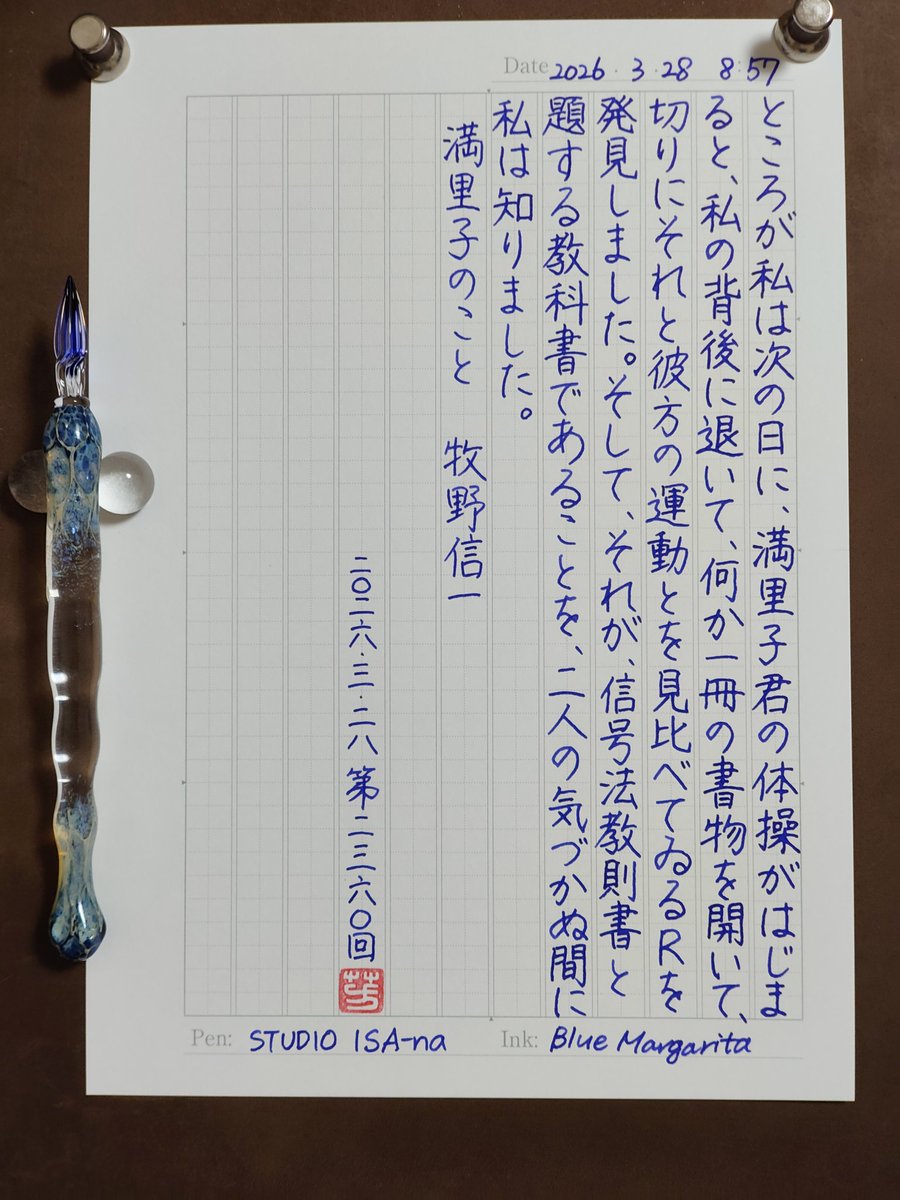 Date 2026.3.28 8:57
ところが私は次の日に、満里子君の体操がはじま
ると、私の背後に退いて、何か一冊の書物を開いて、
切りにそれと彼方の運動とを見比べてゐるRを
発見しました。そして、それが、信号法教則書と
題する教科書であることを、二人の気づかぬ間に
私は知りました。
満里子のこと 牧野信一
二〇二六・三・二八 第二三六〇回
Pen: STUDIO ISA-na
Ink: Blue Margarita